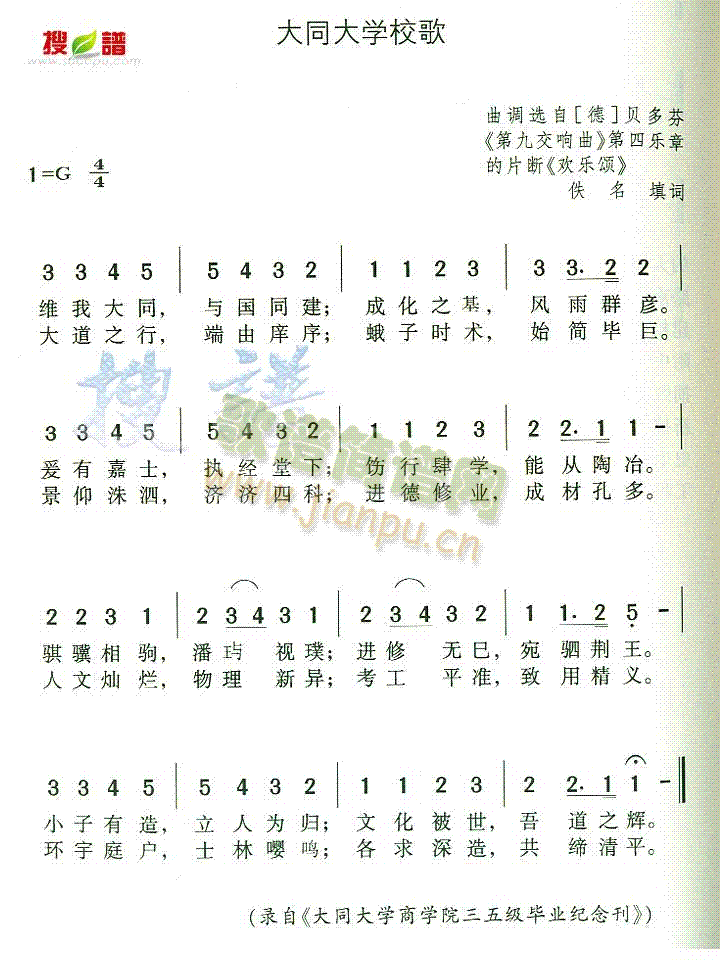 搜谱
www.sooopu.com
大同大学校歌
曲调选自[德]贝多芬
《第九交响曲》第四乐章
的片断《欢乐颂》
佚 名 填词
1=G 4/4
3 3 4 5 | 5 4 3 2 | 1 1 2 3 | 3 3. 2 2 |
维我大同，与国同建；成化之基，风雨群彦。
大道之行，端由庠序；蛾子时术，始简毕巨。
搜谱
歌谱简谱网
www.jianpu.cn
3 3 4 5 | 5 4 3 2 | 1 1 2 3 | 2 2. 1 1 |
爰有嘉士，执经堂下；饬行肆学，能从陶冶。
景仰洙泗，济济四科；进德修业，成材孔多。
2 2 3 1 | 2 3 4 3 1 | 2 3 4 3 2 | 1 1. 2 5 - |
骐骥相驹，潘玙视璞；进修无已，宛驷荆王。
人文灿烂，物理新异；考工平准，致用精义。
3 3 4 5 | 5 4 3 2 | 1 1 2 3 | 2 2. 1 1 - ‖
小子有造，立人为归；文化被世，吾道之辉。
环宇庭户，士林嘤鸣；各求深造，共缔清平。
(录自《大同大学商学院三五级毕业纪念刊》)